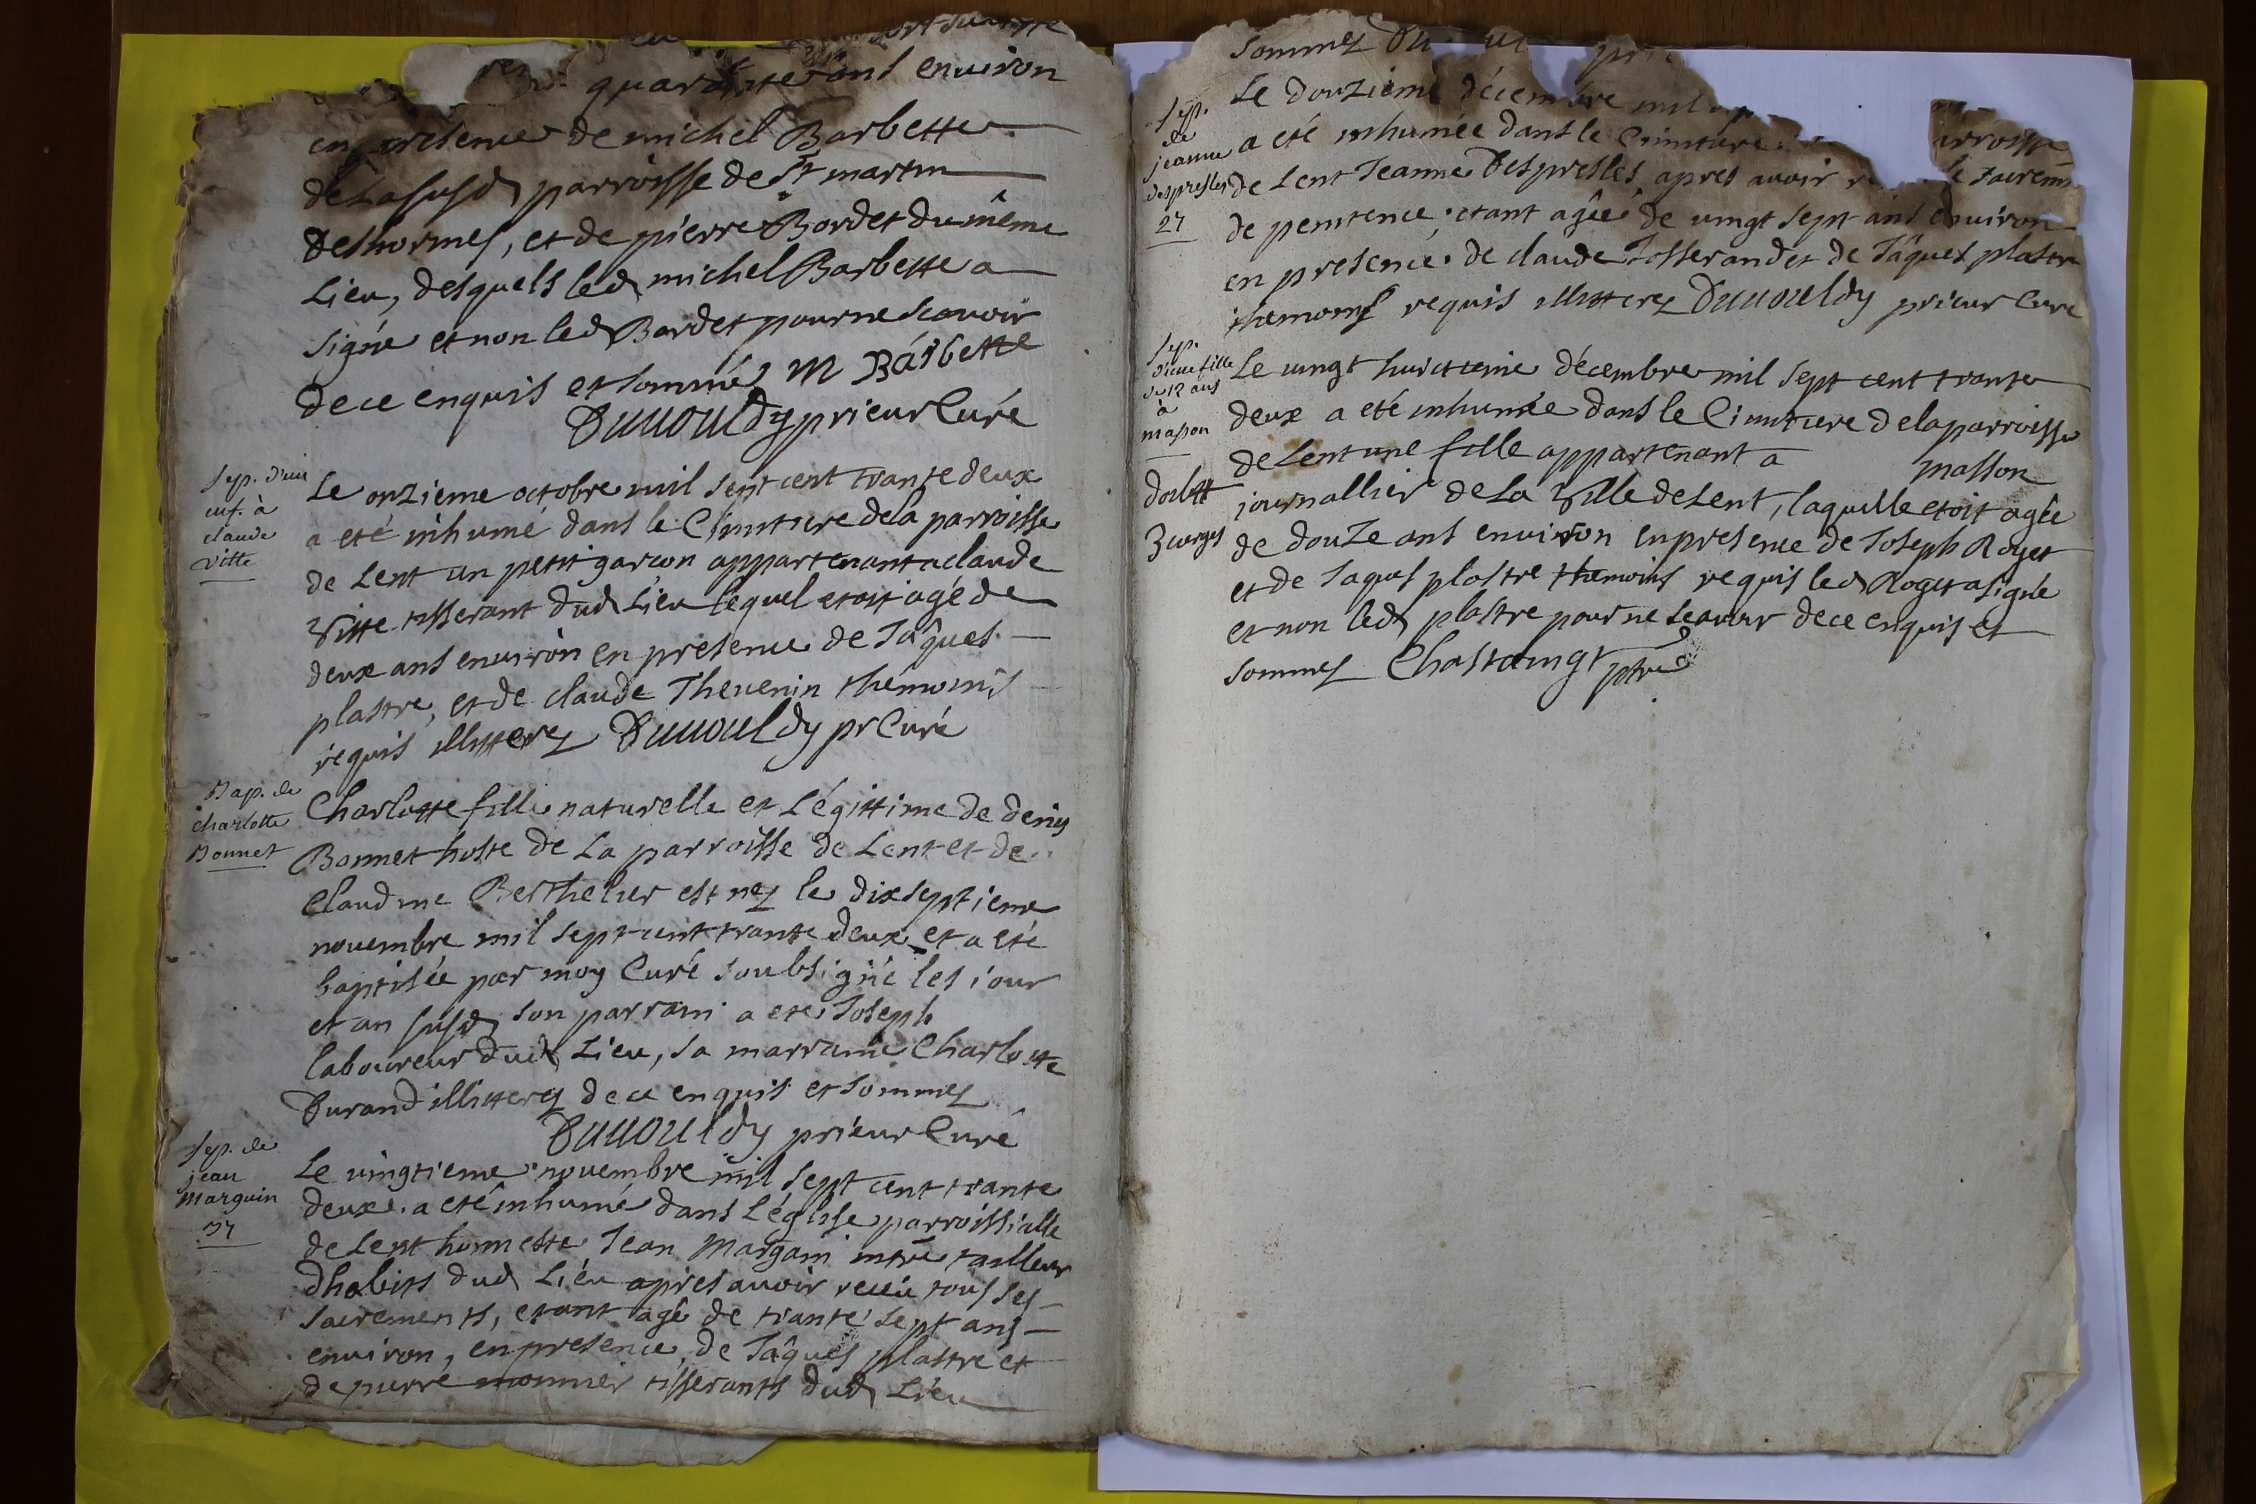 quarante ans environ
en presence de michel Barbette
de La susd parroisse de St martin
Deshormes, et de pierre Bordet du même
Lieu, desquels led michel Barbette a
signé et non led Bordet pour ne scavoir
de ce enquis et sommé M Barbette
Duuouldy prieur Curé
Sep. d'un
enf. à
claude
vitte
Le onzieme octobre mil sept cent trante deux
a eté inhumé dans le Cimitiere de la parroisse
de Lent un petit garcon appartenant a claude
Vitte tisserant dud Lieu lequel etoit agé de
deux ans environ en presence de Jâques
plastre, et de claude Thevenin themoins
requis illitterez Duuouldy pr Curé
Bap. de
charlotte
Bonnet
Charlotte fille naturelle et Légittime de denis
Bonnet hoste de La parroisse de Lent et de
Claudine Berthelier est nez le dixseptieme
novembre mil sept cent trante deux et a eté
baptisée par moy Curé soubsigné les jour
et an susd son parrain a eté Joseph
laboureur dud Lieu, sa marraine Charlotte
Durand illitterez de ce enquis et sommez
Duuouldy prieur Curé
Sep. de
jean
Marguin
37
Le vingtieme novembre mil sept cent trante
deux a eté inhumé dans L'église parroissialle
de Lent honneste Jean Margain mtre tailleur
d'habits dud Lieu apres avoir receu tous ses
sacrements, etant agé de trante sept ans
environ, en presence de Jâques plastre et
de pierre monnier tisserants dud Lieu
sommez
Sep.
de
jeanne
despresles
27
Le douzieme décembre mil
a eté inhumée dans le Cimitiere parroisse
de Lent Jeanne Despresles apres avoir le sacrem
de penitence, etant agée de vingt sept ans environ
en presence de claude Josserand et de Jâques plastre
themoins requis illitterez Duuouldy prieur Curé
Sep.
d'une fille
de 12 ans
à
masson
doibtt
3 cierges
Le vingt huictieme décembre mil sept cent trante
deux a eté inhumée dans le Cimitiere de la parroisse
de Lent une fille appartenant a masson
journallier de La Ville de Lent, laquelle etoit agée
de douze ans environ en presence de Joseph Royet
et de Jaques plastre themoins requis led Roget a signé
et non led plastre pour ne scavoir de ce enquis et
sommez Chastaingt ptre